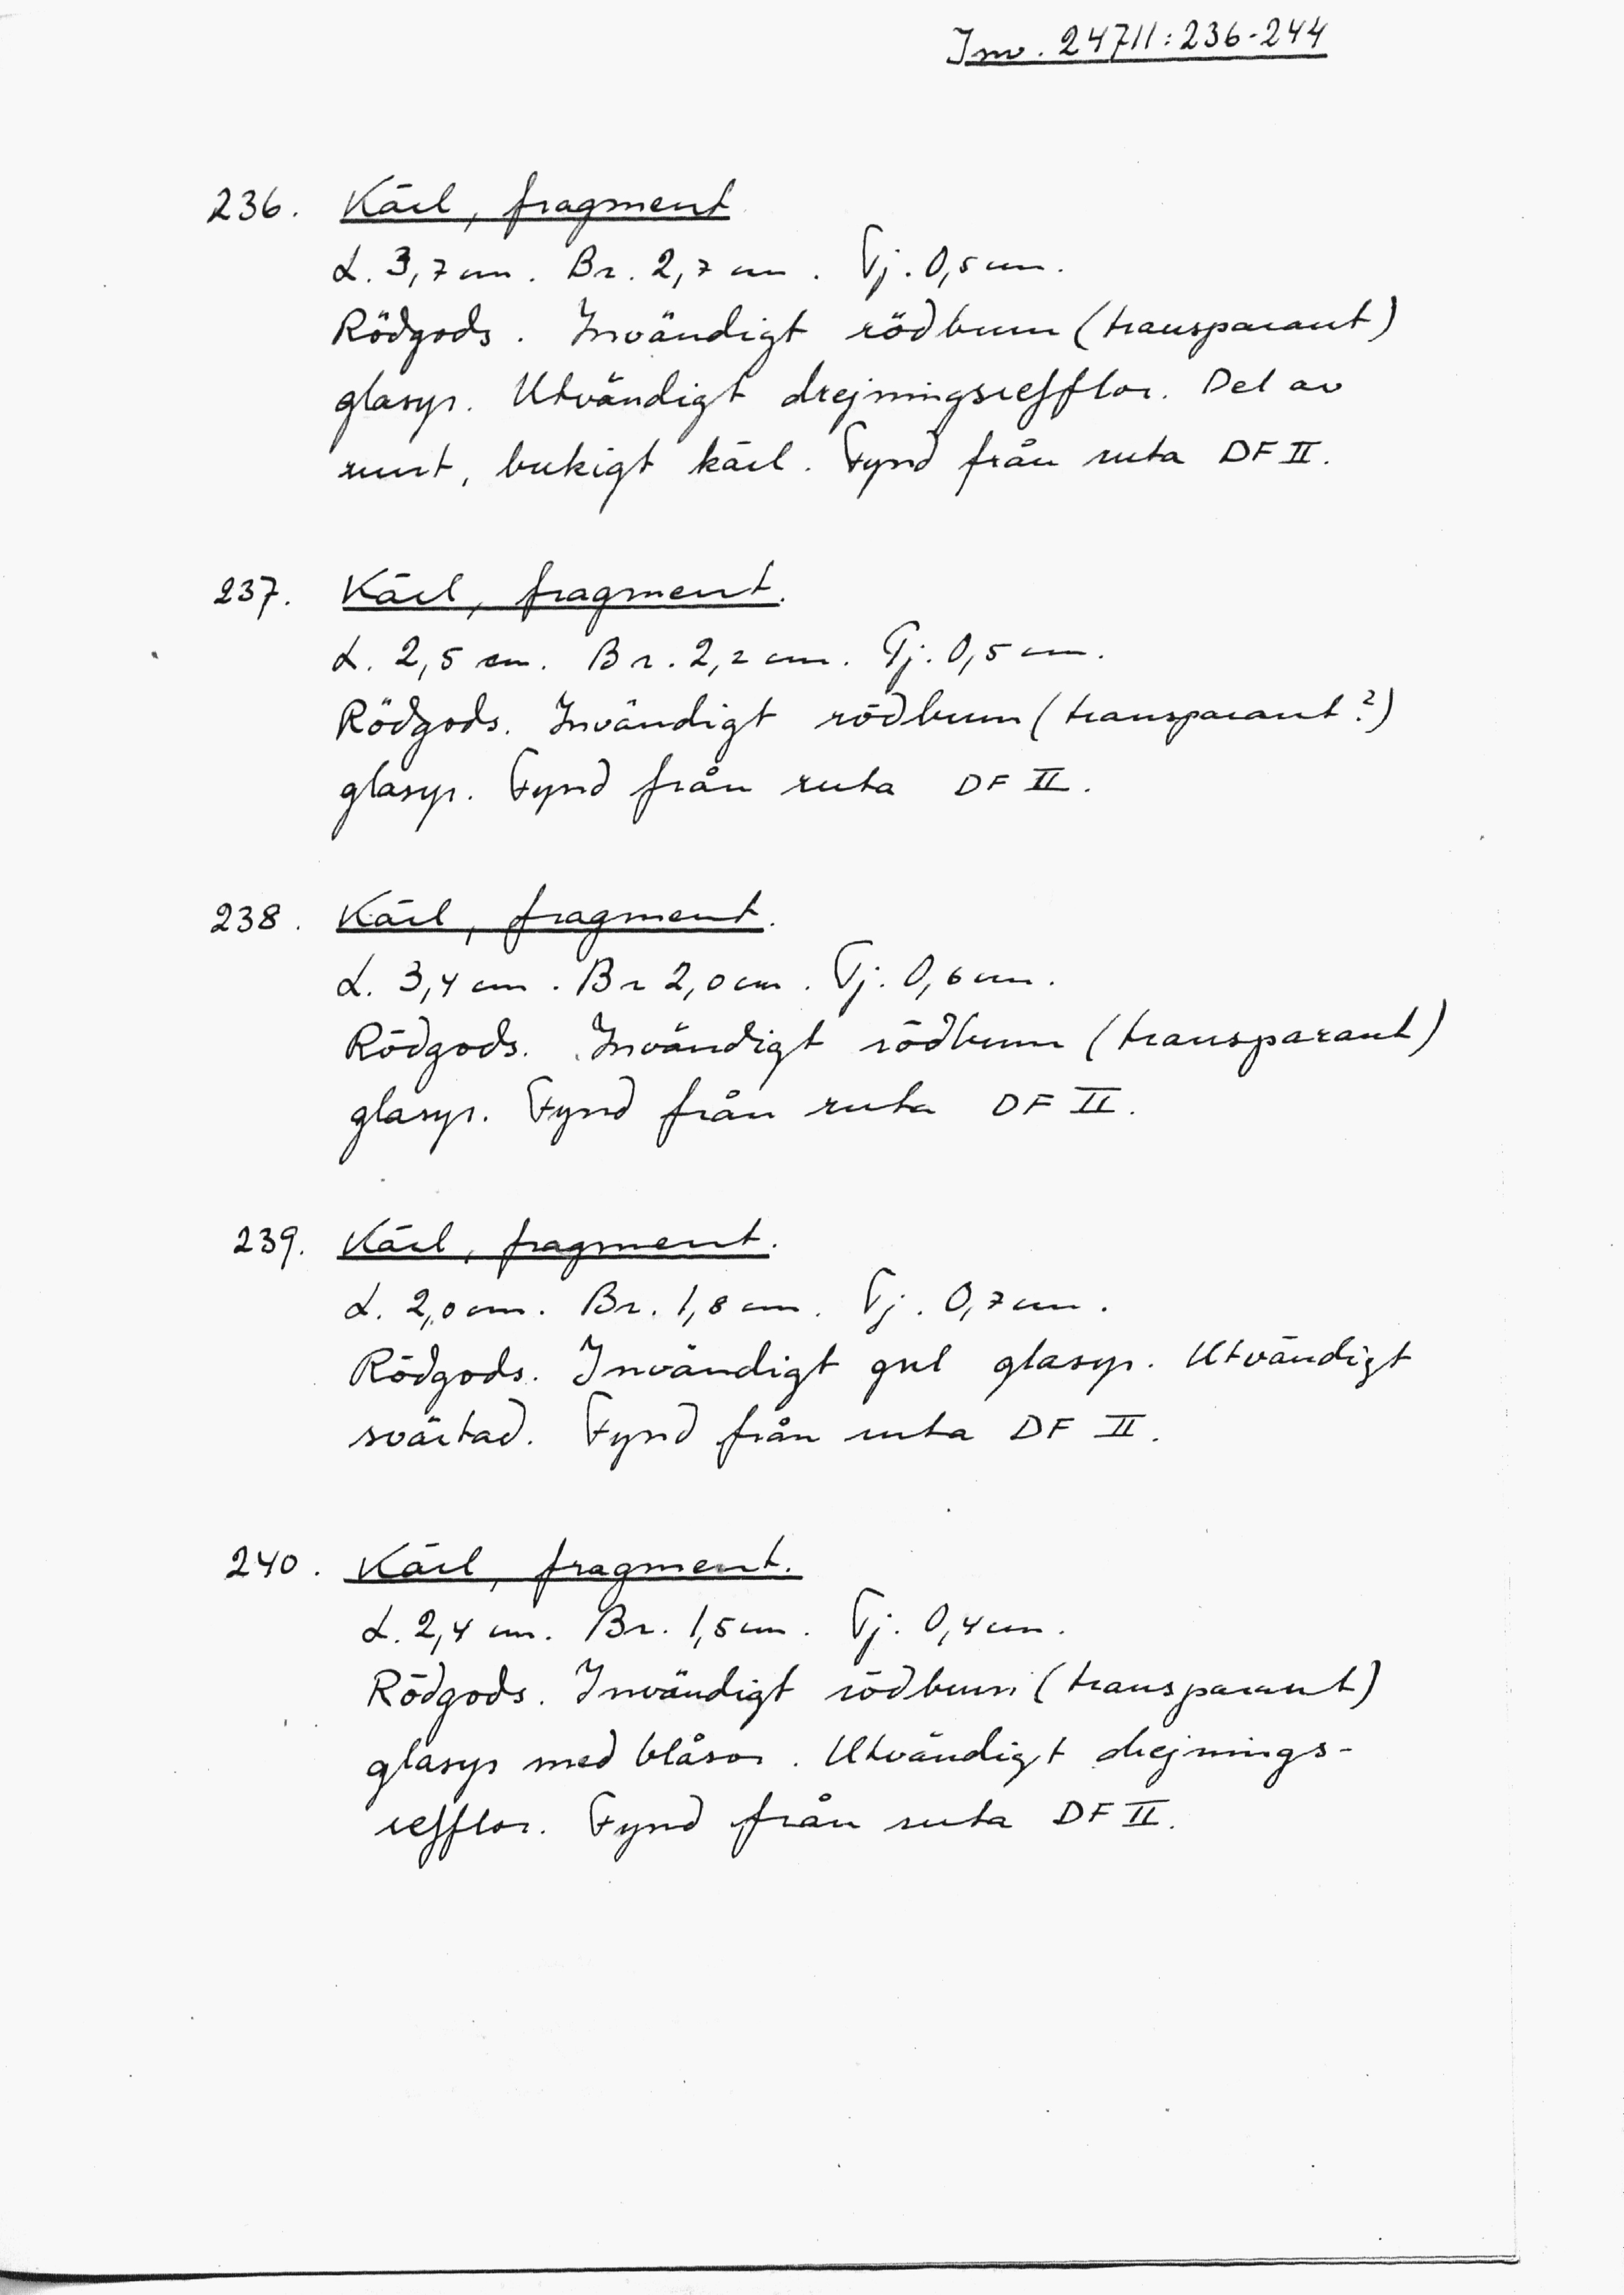 Inv. 24711:236-244
236. Kärl, fragment
L. 3,7 cm. Br. 2,7 cm. Tj. 0,5 cm.
Rödgods. Invändigt rödbrun (transparant)
glasyr. Utvändigt drejningsrefflor. Del av
runt, bukigt kärl. Fynd från ruta DF II.
237. Kärl, fragment.
L. 2,5 cm. Br. 2,2 cm. Tj. 0,5 cm.
Rödgods. Invändigt rödbrun (transparant?)
glasyr. Fynd från ruta DF II.
238. Kärl, fragment.
L. 3,4 cm. Br 2,0 cm. Tj. 0,6 cm.
Rödgods. Invändigt rödbrun (transparant)
glasyr. Fynd från ruta DF II.
239. Kärl, fragment.
L. 2,0 cm. Br. 1,8 cm. Tj. 0,7 cm.
Rödgods. Invändigt gul glasyr. Utvändigt
svärtad. Fynd från ruta DF II.
240. Kärl, fragment.
L. 2,4 cm. Br. 1,5 cm. Tj. 0,4 cm.
Rödgods. Invändigt rödbrun (transparant)
glasyr med blåsor. Utvändigt drejnings-
refflor. Fynd från ruta DF II.